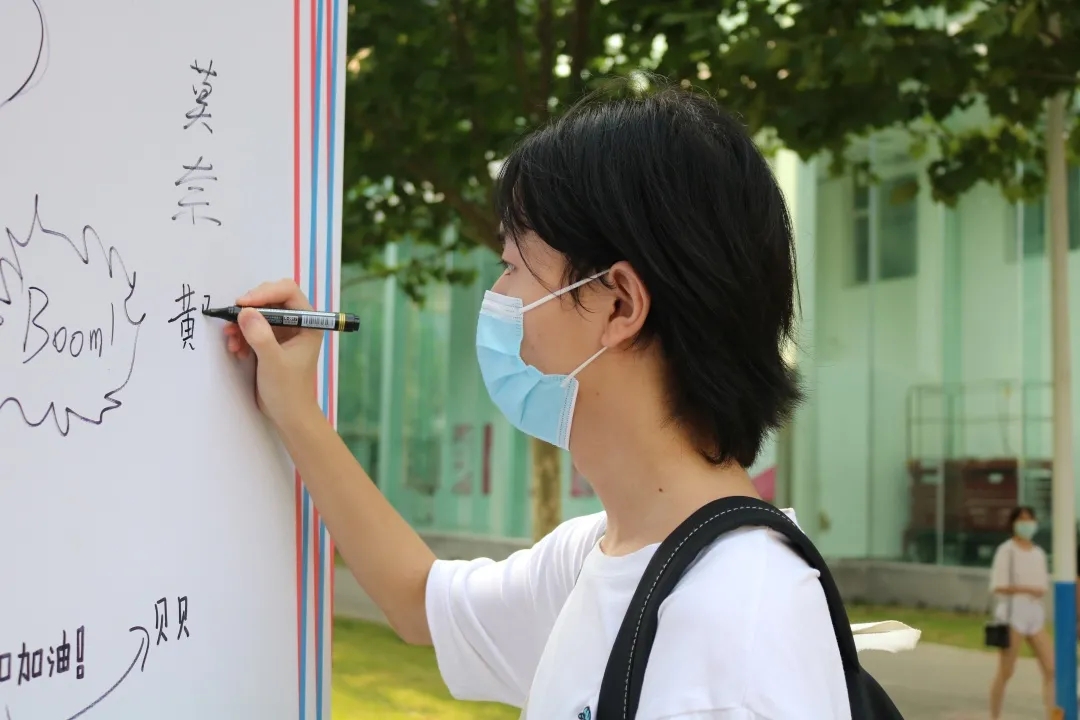 莫奈
黄
Boom!
加油!
贝贝